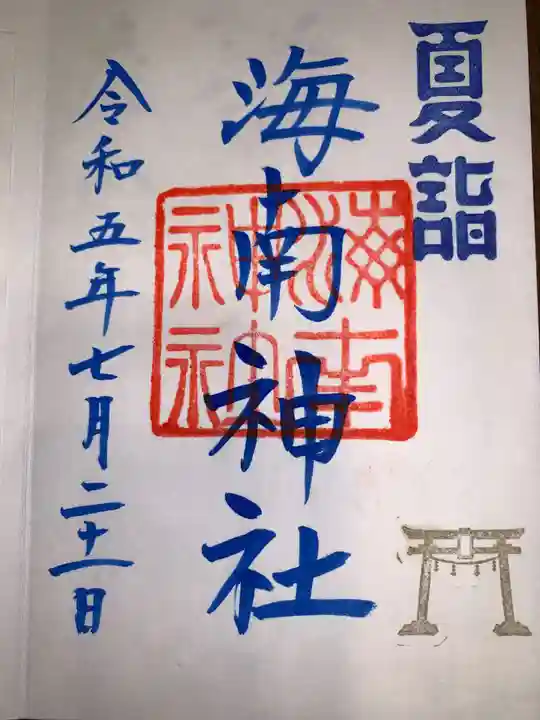 夏詣
海南神社
海南神社
令和五年七月二十一日